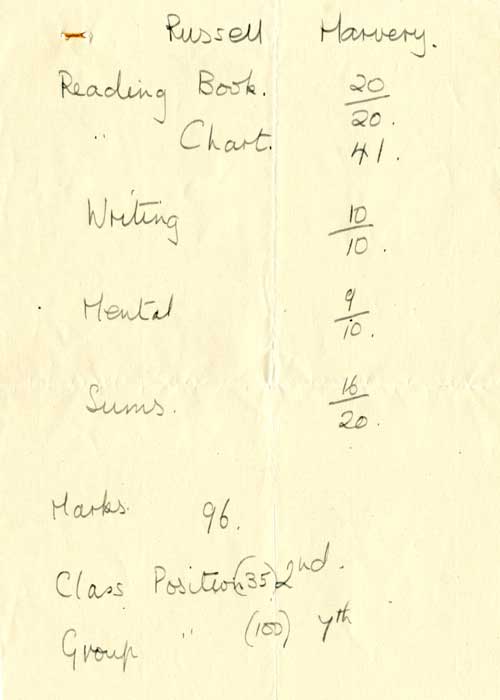 Russell Harvery.
Reading Book. 20/20.
" Chart. 41.
Writing 10/10.
Mental 9/10.
Sums. 16/20.
Marks. 96.
Class Position (35) 2nd.
Group " (100) 7th